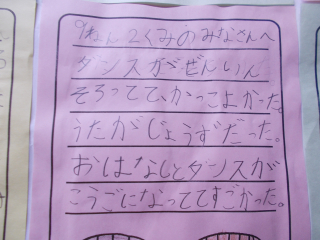 2くみのみなさんへ
ダンスがぜんいん
そろってて、かっこよかった。
うたがじょうずだった。
おはなしとダンスが
こうごになっててすごかった。